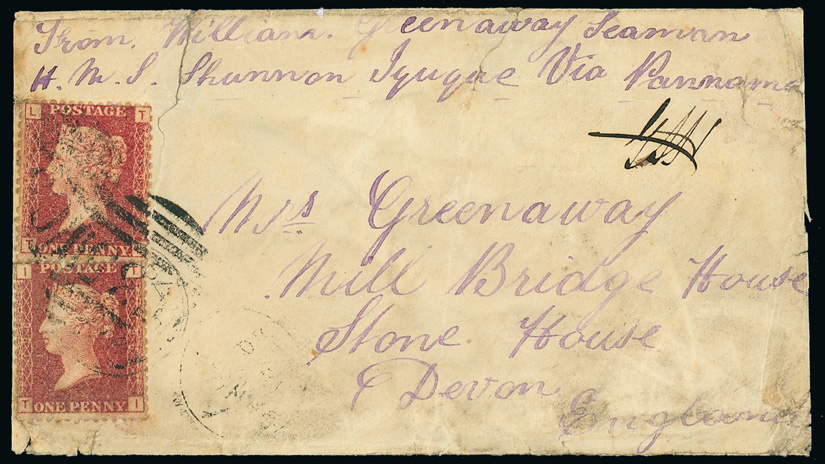 From. William. Greenaway Seaman
H. M. S. Shannon Iquique Via Pannama
L POSTAGE T
ONE PENNY
Mrs Greenaway
Mill Bridge House
I POSTAGE T
Stone House
Devon
T ONE PENNY I
England